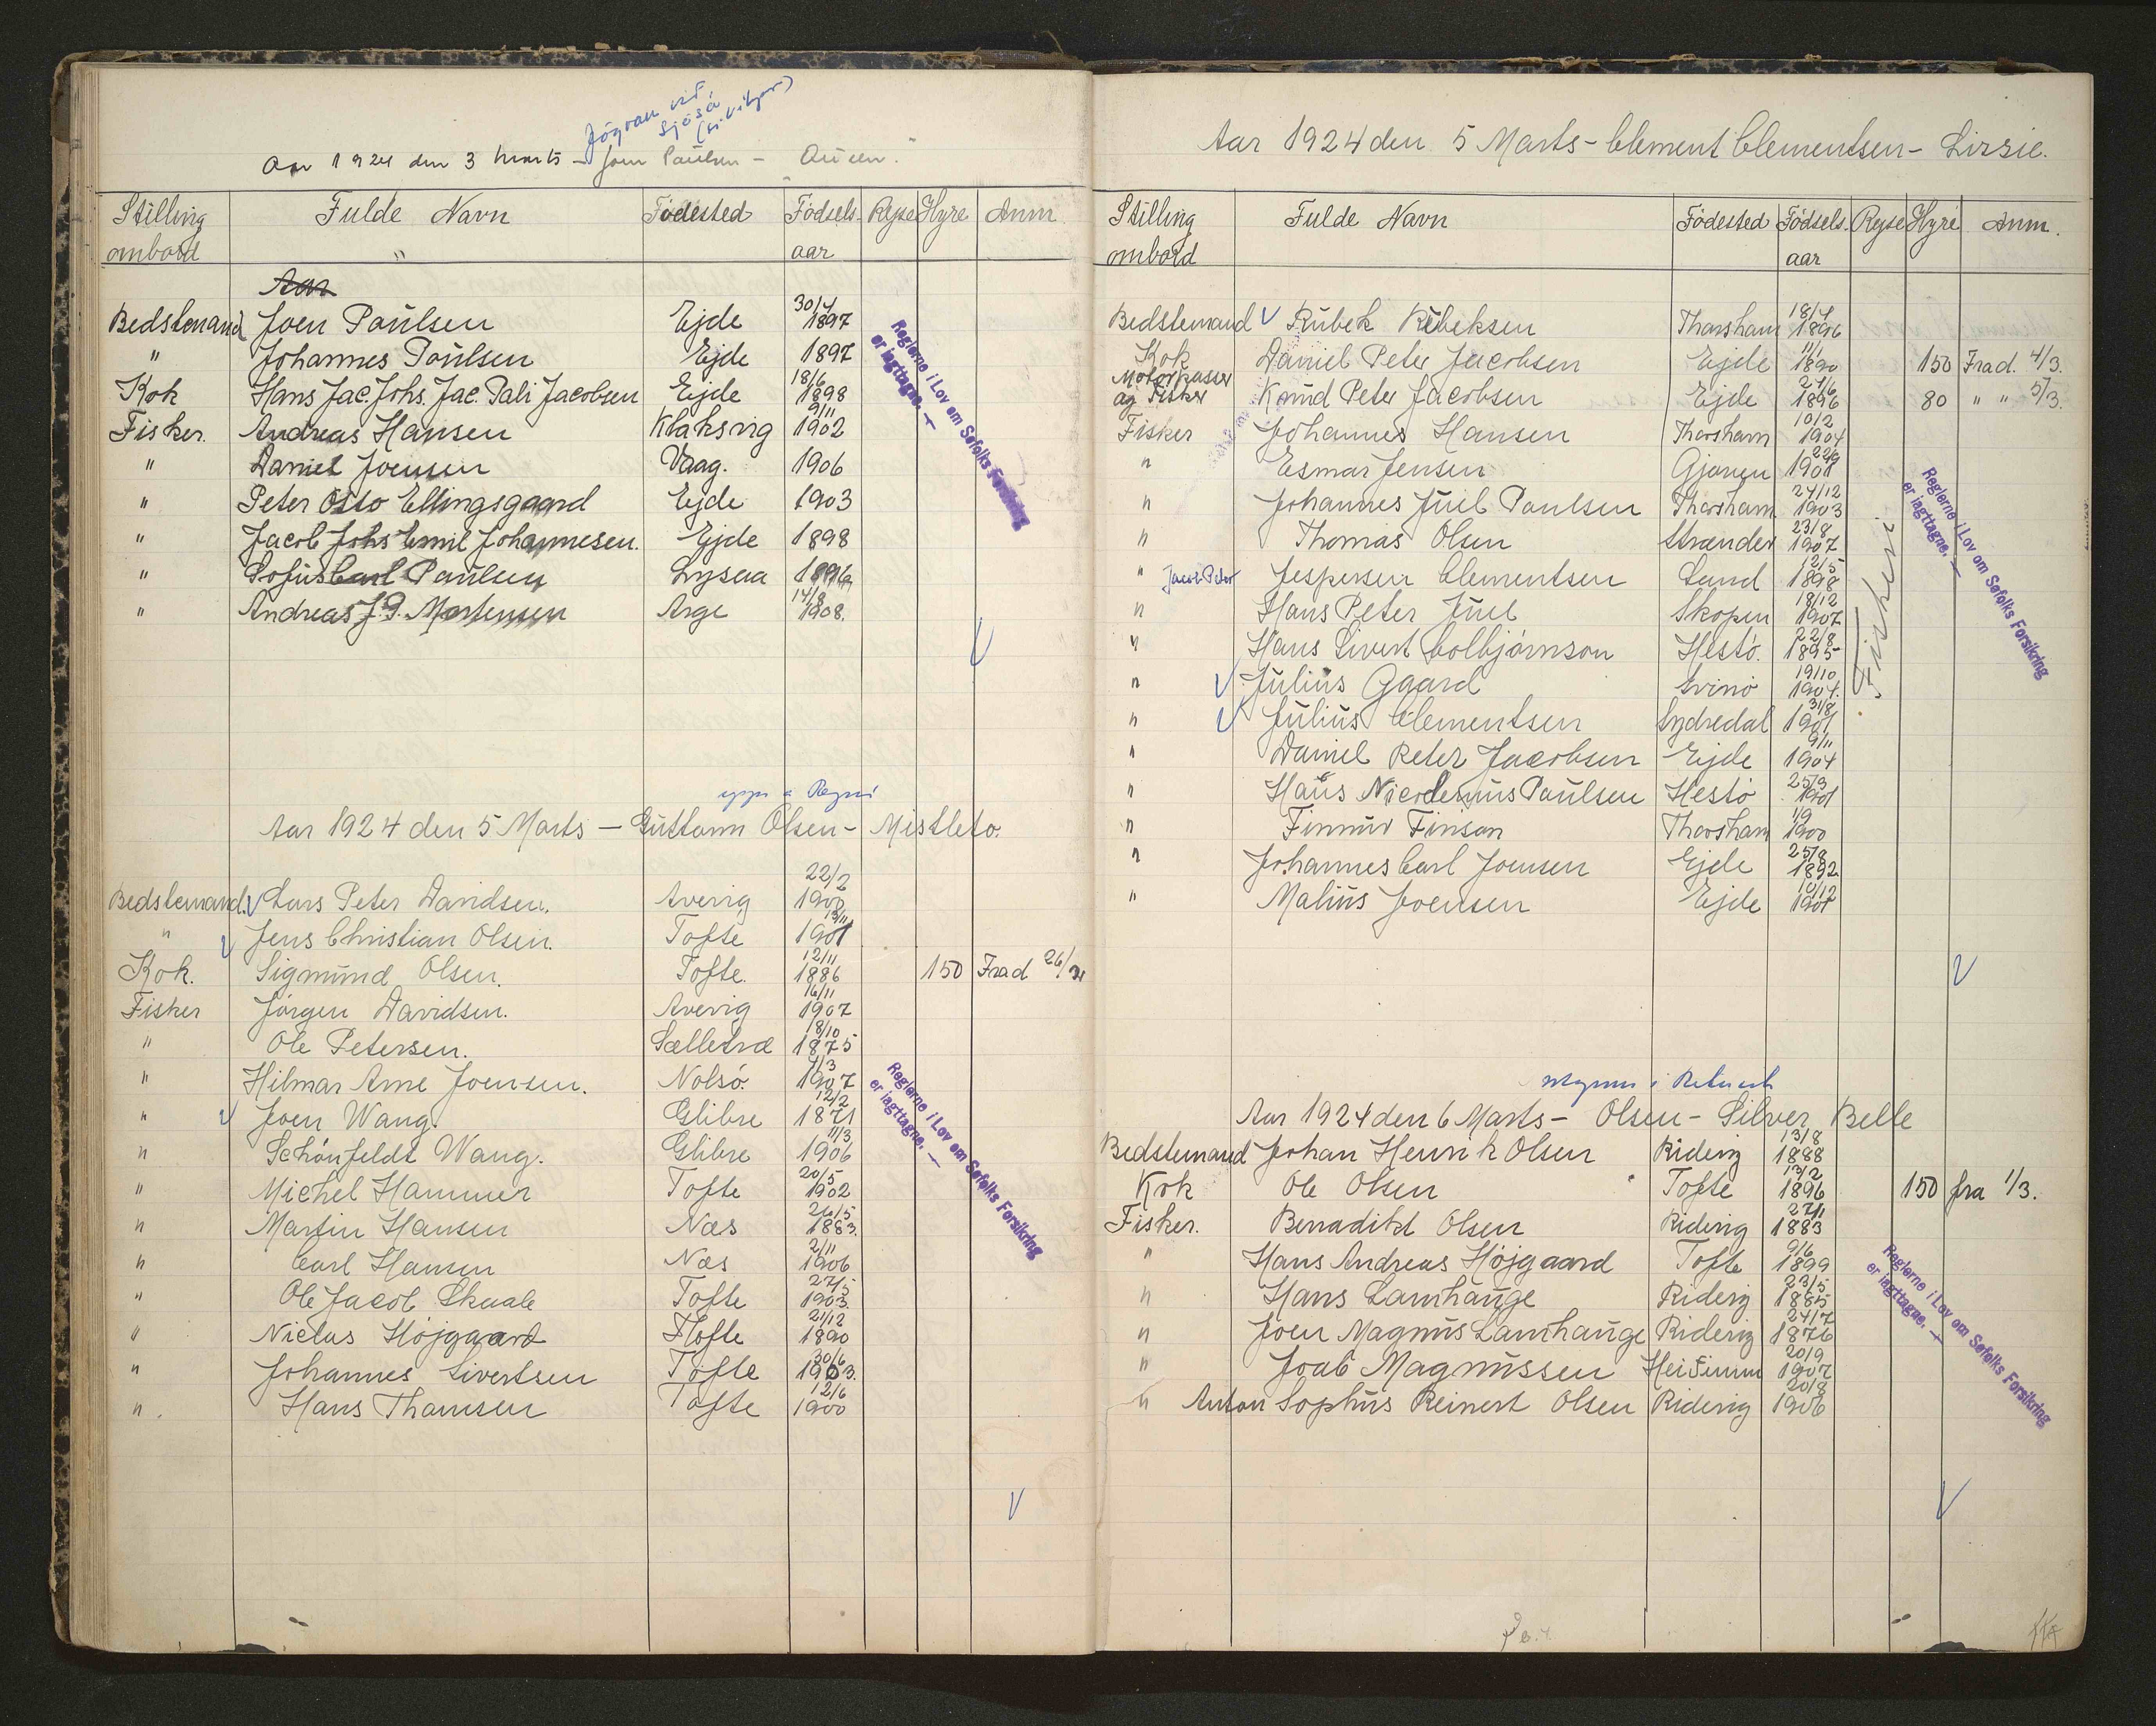 Jógvan við
Sjósá
Aar 1924 den 3 Marts - Joen Paulsen - Queen.
Stilling ombord Fulde Navn Födested Födsels-aar Rejse Hyre Anm
Aar
Bedstemand Joen Poulsen Ejde 30/4 1897
" Johannes Poulsen Ejde 1897
Kok Hans Jac. Johs. Jac. Pali Jacobsen Ejde 18/6 1898
Fisker. Andreas Hansen Klaksvig 9/11 1902
" Daniel Joensen Vaag. 1906
" Peter Otto Ellingsgaard Ejde 1903
" Jacob Johs Emil Johannesen. Ejde 1898
" Sofus Carl Paulsen Lysaa 1896
" Andreas J. D. Mortensen Arge 14/8 1908.
Reglerne i Lov om Søfolks Forsikring
er iagttagne. —
Aar 1924 den 5 Marts - Guttorm Olsen - Mistleto.
Bedstemand. Lars Peter Davidsen. Avevig 22/2 1900
" Jens Christian Olsen. Tofte 13/11 1901
Kok. Sigmund Olsen. Tofte. 12/11 1886 150 Frad 26/2
Fisker Jörgen Davidsen. Avevig 16/11 1907
" Ole Petersen. Selletræ 18/10 1875
" Hilmar Arne Joensen. Nolsö. 4/3 1907
" Joen Wang. Glibre 12/2 1871
" Schönfeldt Wang. Glibre 11/3 1906
" Michel Hammer Tofte 20/5 1902
" Martin Hansen Næs 26/5 1883.
" Carl Hansen Næs 2/11 1906
" Ole Jacob Skaale Tofte 27/5 1903.
" Niclas Höjgaard Tofte 21/12 1890
" Johannes Sivertsen Tofte 30/6 1903.
" Hans Thomsen Tofte 12/6 1900
Reglerne i Lov om Søfolks Forsikring
er iagttagne. —
Aar 1924 den 5 Marts - Clement Clementsen - Lizzie.
Stilling ombord Fulde Navn Födested Födsels-aar Rejse Hyre Anm.
Bedstemand Rubek Rubeksen Thorshavn 18/4 1896
Kok Daniel Peter Jacobsen Ejde 11/1 1890 150 Frad. 4/3.
Motorpasser
og Fisker Knud Peter Jacobsen Ejde 27/6 1896 80 " " 5/3.
Fisker Johannes Hansen Thorshavn 10/2 1904
" Esmar Jensen Gjoven 22/9 1901
" Johannes Juel Poulsen Thorshavn 24/12 1903
" Thomas Olsen Strænder 23/8 1907
" Jacob Peter Jespersen Clementsen Sand 12/5 1898
" Hans Peter Juel Skopen 18/12 1907
" Hans Sivert Colbjörnson Hestö. 22/8 1895
" Julius Gaard Svinö 19/10 1904.
" Julius Clementsen Sydredal 31/8 1901
" Daniel Peter Jacobsen Ejde 9/11 1904
" Hans Nicodemus Poulsen Hestö 25/3 1901
" Finnur Finson Thorshavn 1/9 1900
" Johannes Carl Joensen Ejde 25/8 1892
" Malius Joensen Ejde 10/12 1901
Fiskeri
Reglerne i Lov om Søfolks Forsikring
er iagttagne. —
Aar 1924 den 6 Marts - Olsen - Silver Belle
Bedstemand Johan Henrik Olsen Ridevig 13/8 1888
Kok Ole Olsen Tofte 12/2 1896 150 fra 1/3.
Fisker. Benadikt Olsen Ridevig 27/11 1883
" Hans Andreas Höjgaard Tofte 9/6 1899
" Hans Lamhauge Ridevig 23/5 1885
" Joen Magnus Lamhauge Ridevig 24/7 1876
" Joab Magnussen 20/9 1907
" Anton Sophus Reinert Olsen Ridevig 20/8 1906
Reglerne i Lov om Søfolks Forsikring
er iagttagne. —